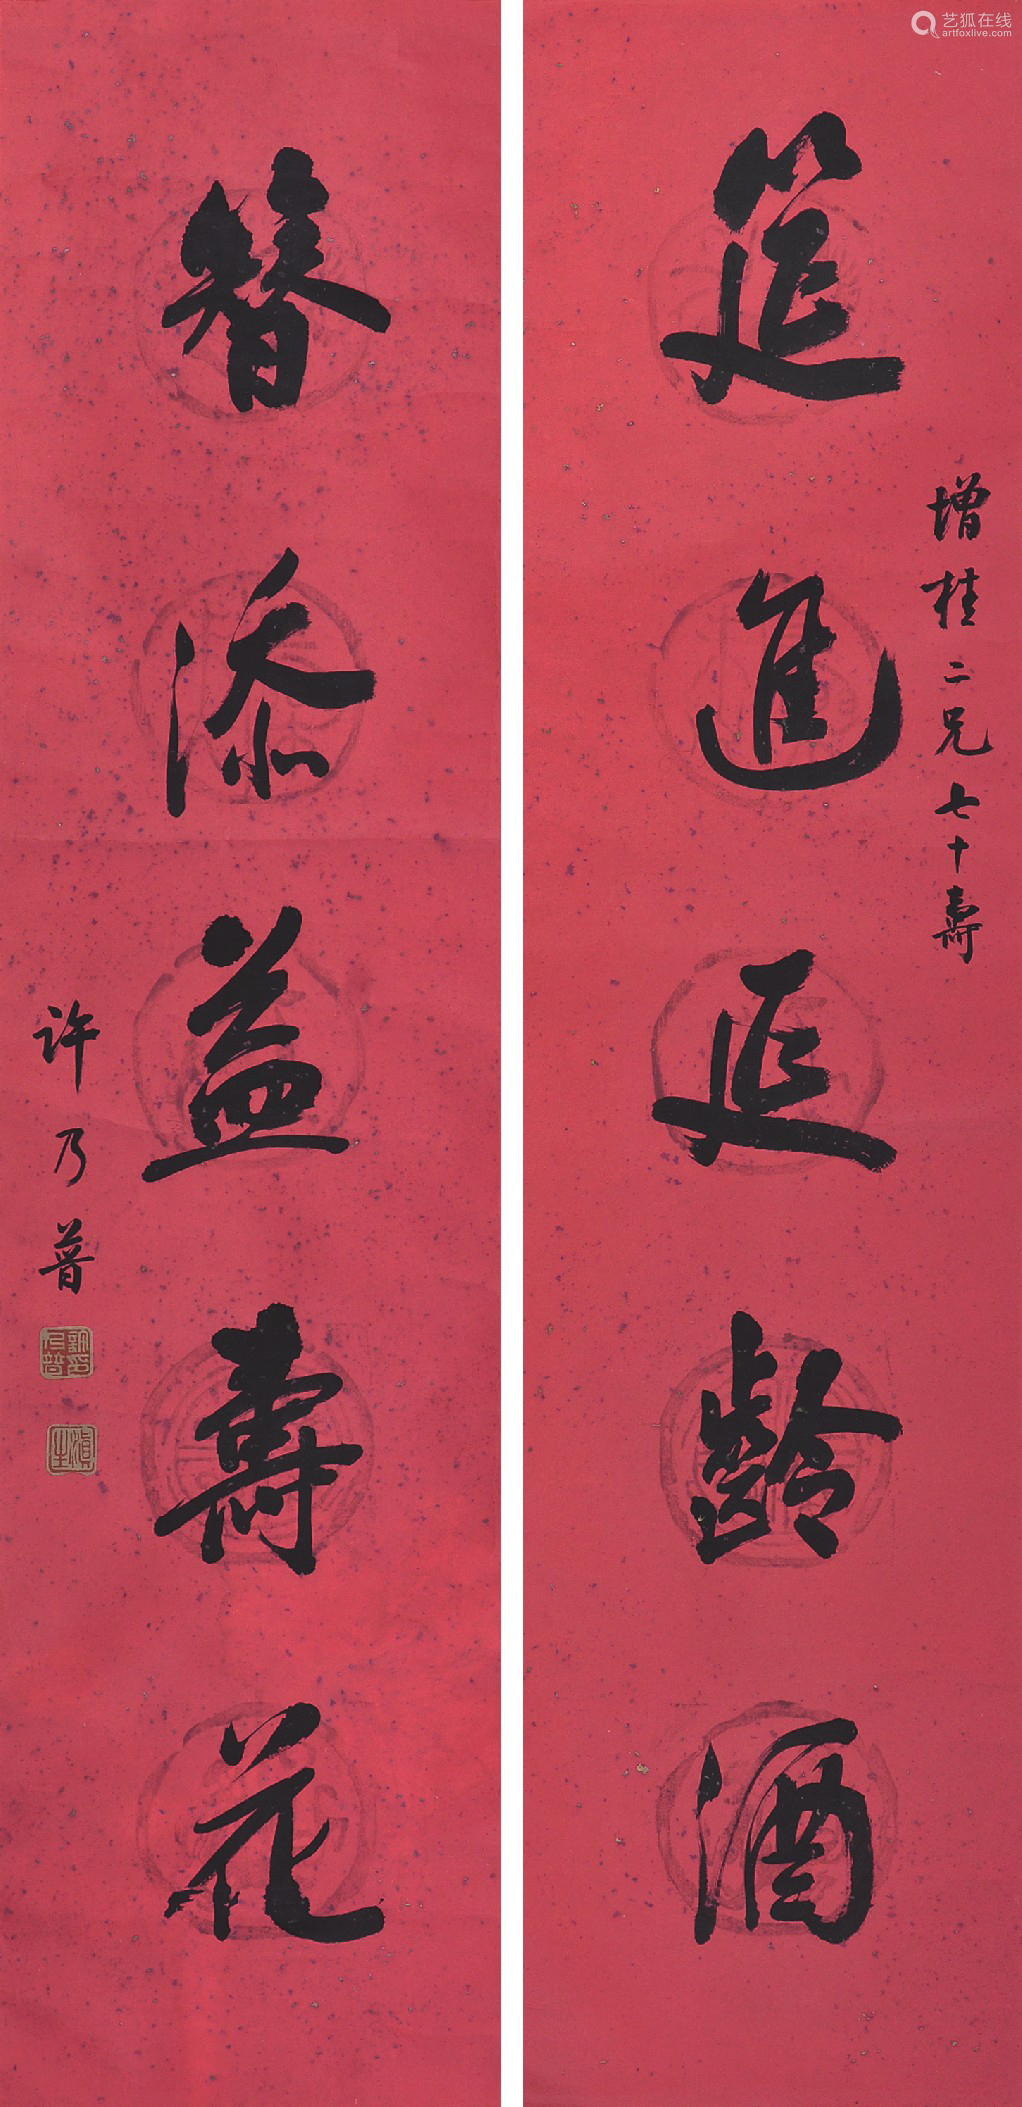 筵進延齡酒
增桂二兄七十壽
簪添益壽花
許乃普
艺狐在线
artfoxlive.com